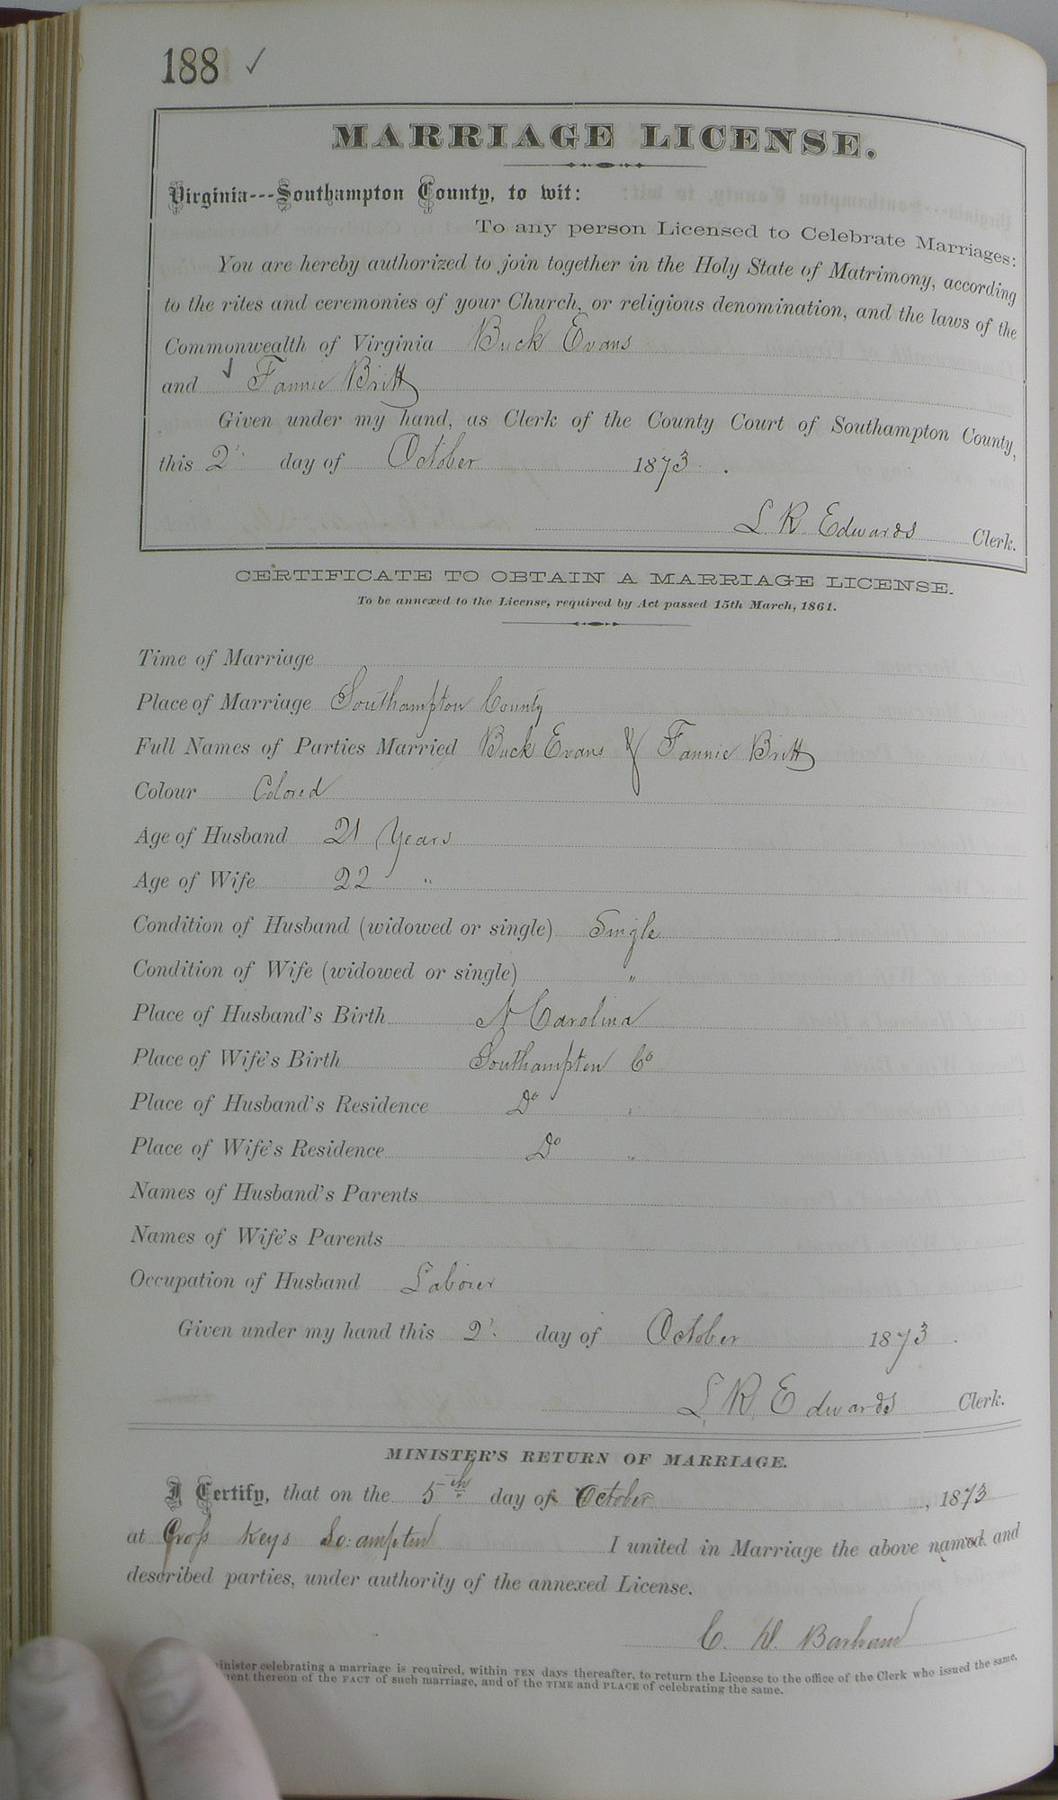 188 ✓
MARRIAGE LICENSE.
Virginia---Southampton County, to wit:
To any person Licensed to Celebrate Marriages:
You are hereby authorized to join together in the Holy State of Matrimony, according
to the rites and ceremonies of your Church, or religious denomination, and the laws of the
Commonwealth of Virginia Buck Evans
and Fannie Britt
Given under my hand, as Clerk of the County Court of Southampton County,
this 2' day of October 1873.
L. R. Edwards Clerk.
CERTIFICATE TO OBTAIN A MARRIAGE LICENSE.
To be annexed to the License, required by Act passed 15th March, 1861.
Time of Marriage
Place of Marriage Southampton County
Full Names of Parties Married Buck Evans & Fannie Britt
Colour Colored
Age of Husband 21 Years
Age of Wife 22 "
Condition of Husband (widowed or single) Single
Condition of Wife (widowed or single) "
Place of Husband's Birth N Carolina
Place of Wife's Birth Southampton Co
Place of Husband's Residence Do "
Place of Wife's Residence Do "
Names of Husband's Parents
Names of Wife's Parents
Occupation of Husband Laborer
Given under my hand this 2' day of October 1873.
L. R. Edwards Clerk.
MINISTER'S RETURN OF MARRIAGE.
I Certify, that on the 5th day of October, 1873
at Cross Keys So:ampton I united in Marriage the above named and
described parties, under authority of the annexed License.
C. W. Barham
inister celebrating a marriage is required, within TEN days thereafter, to return the License to the office of the Clerk who issued the same,
ent thereon of the FACT of such marriage, and of the TIME and PLACE of celebrating the same.